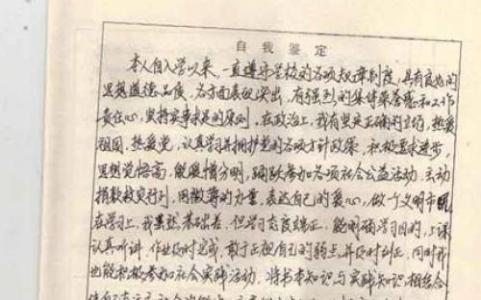 自我鉴定
本人自入学以来,一直遵守学校的各项规章制度,具有良好的
思想道德品质,各方面表现突出,有强烈的集体荣誉感和工作
责任心,坚持实事求是的原则,在政治上,我有坚定正确的立场,热爱
祖国,热爱党,认真学习并拥护党的各项方针政策,积极要求进步,
思想觉悟高,能爱憎分明,踊跃参加各项社会公益活动,主动
捐款救灾行列,用微薄的力量,表达自己的爱心,做一个文明市民
在学习上,我虽然基础差,但学习态度端正,能明确学习目的,上课
认真听讲,作业及时完成,敢于正视自己的弱点,并及时纠正,同时我
也能积极参加社会实践活动,将书本知识与实践知识相结合